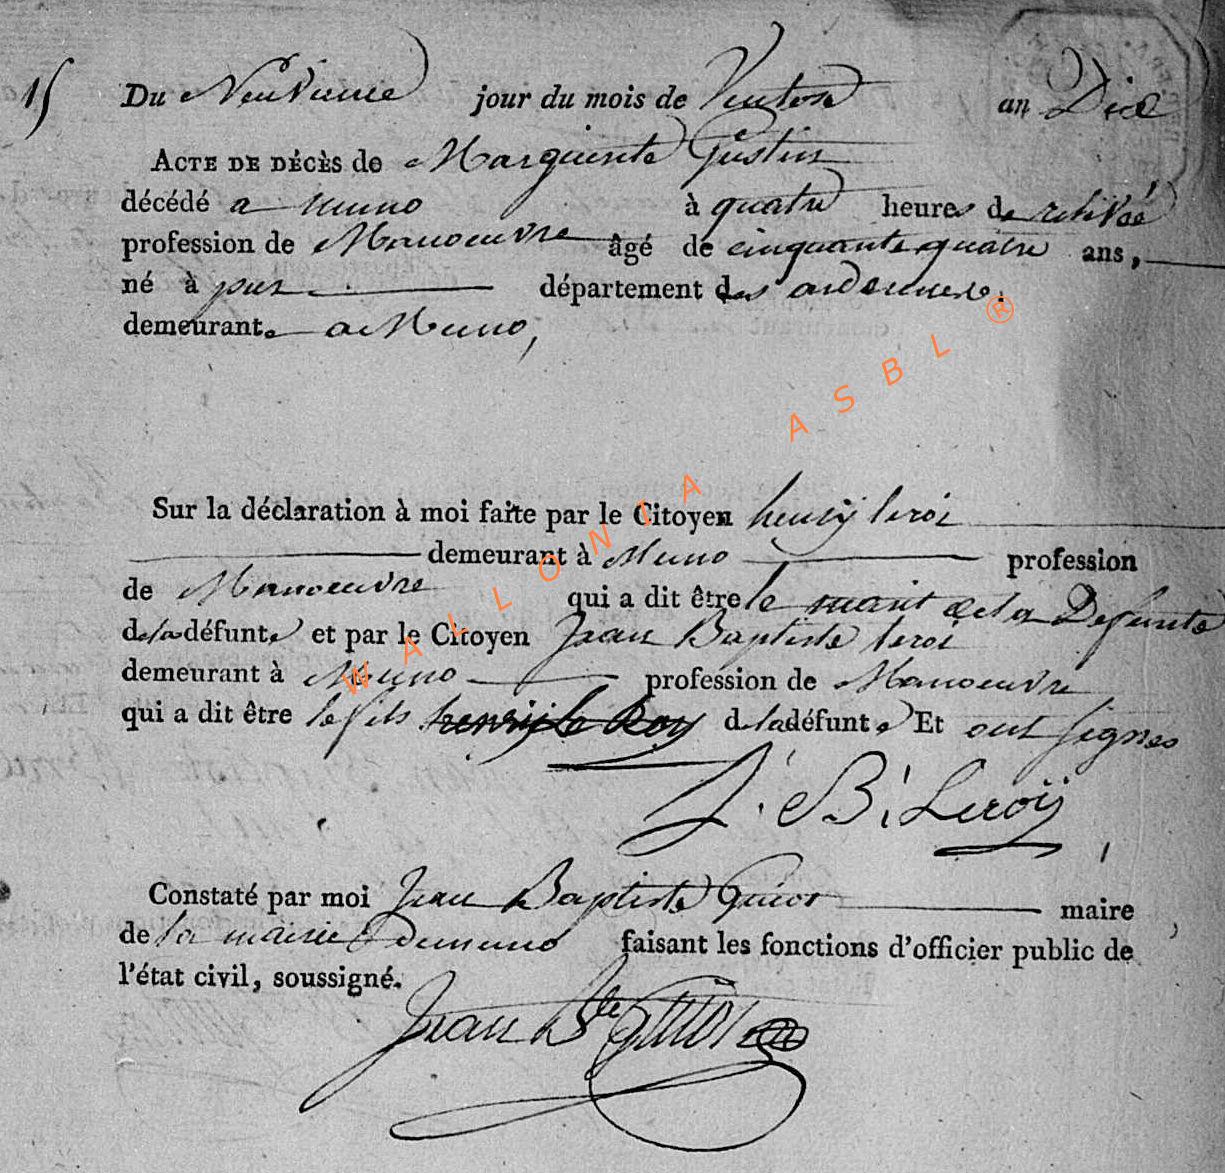 15 Du Neuvieme jour du mois de Ventose an Dix
ACTE DE DÉCÈS de Marguerite Gustin
décédé a muno à quatre heures de relevée
profession de Manoeuvre âgé de cinquante quatre ans,
né à pur département des ardennes.
demeurante a Muno,
Sur la déclaration à moi faite par le Citoyen henry leroi
demeurant à Muno profession
de Manoeuvre qui a dit être le mari de la Defunte
de la défunte et par le Citoyen Jean Baptiste leroi
demeurant à Muno profession de Manoeuvre
qui a dit être le fils henrij le Roy de la défunte Et ont signes
J. B. Leroij
Constaté par moi Jean Baptiste Guiot maire
de la mairie de muno faisant les fonctions d'officier public de
l'état civil, soussigné.
Jean Bte Guiot
WALLONIA ASBL ®